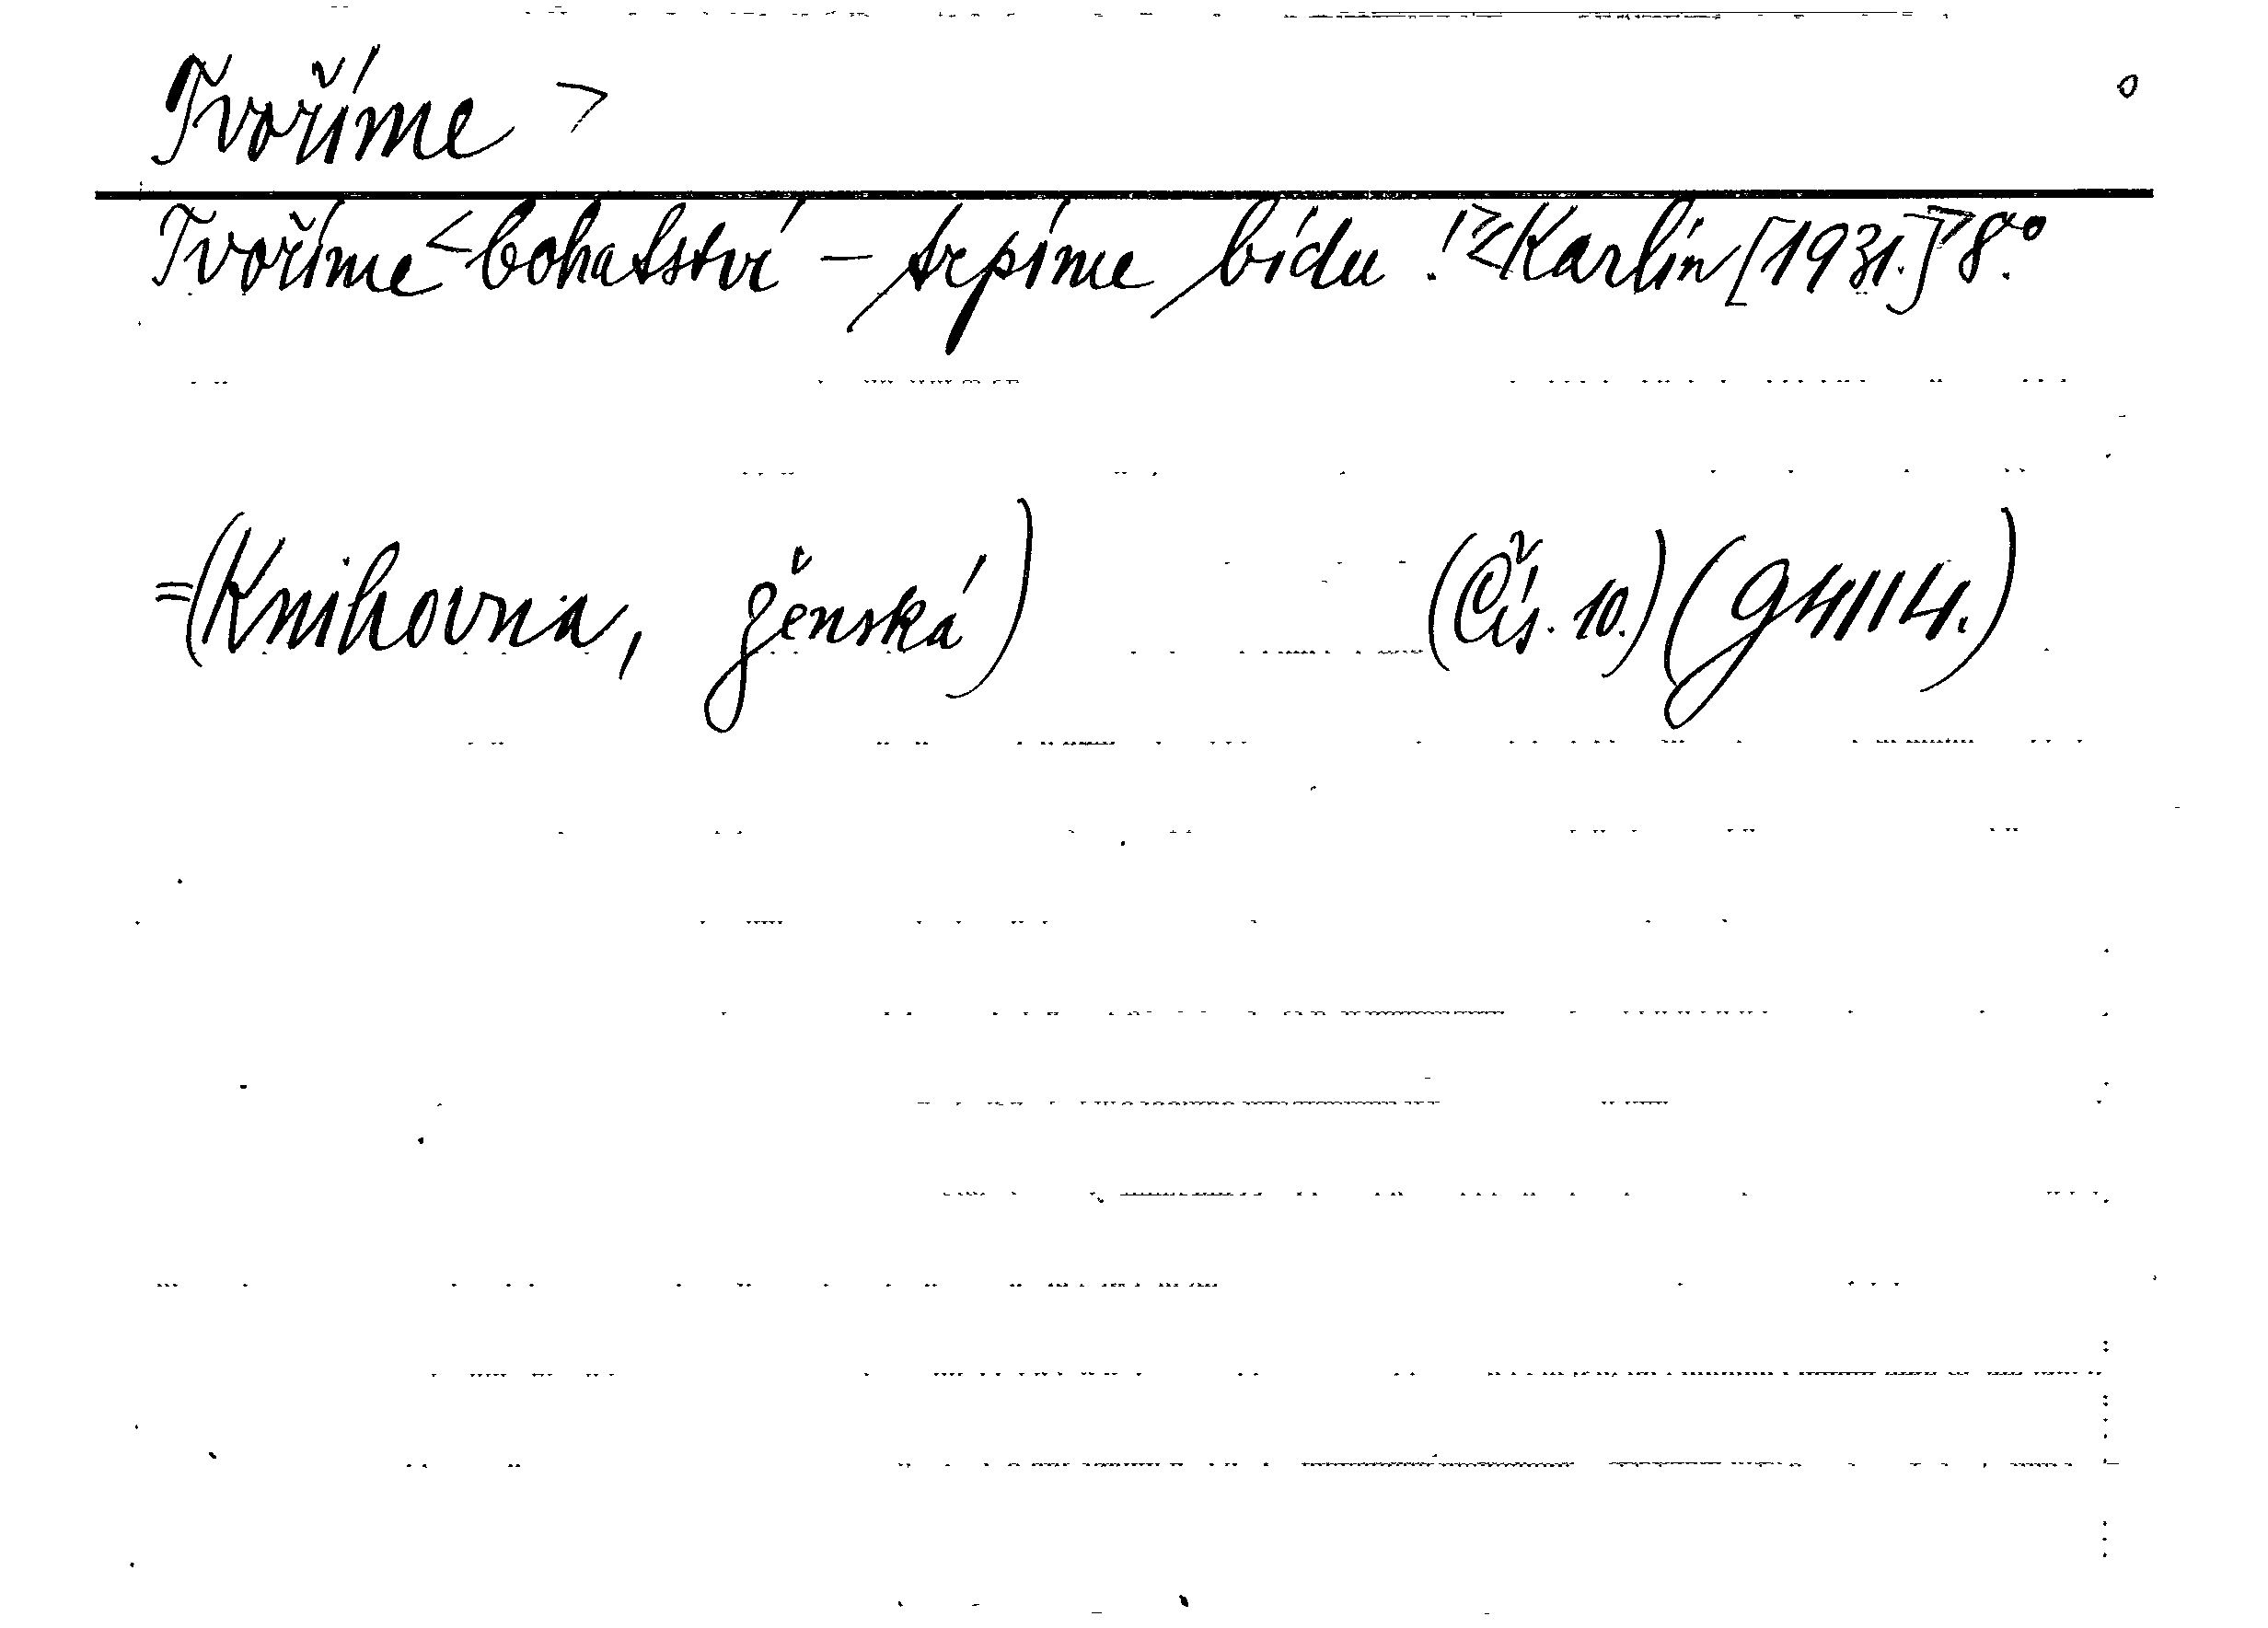 Tvoříme > o
Tvoříme < bohatství – trpíme bídu ! > < Karlín [1931.] > 8.°
=(Knihovna, ženská) (Čís. 10.) (g 4114.)